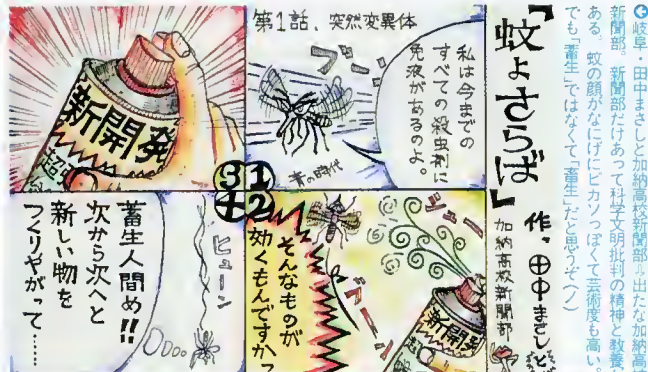 岐阜・田中まさしと加納高校新聞部⇒出たな加納高校
新聞部。新聞部だけあって科学文明批判の精神と教養が
ある。蚊の顔がなにげにピカソっぽくて芸術度も高い。
でも「蓄生」ではなくて「畜生」だと思うぞ(ノ)
「蚊よさらば」
作、田中まさしと
加納高校新聞部
第1話、突然変異体
ブーン
私は今までの
すべての殺虫剤に
免疫があるのよ。
青の時代
1
2
シュー
ブーン
そんなものが
効くもんですかっ
新開発
3
新開発
4
ヒューン
蓄生人間め!!
次から次へと
新しい物を
つくりやがって……